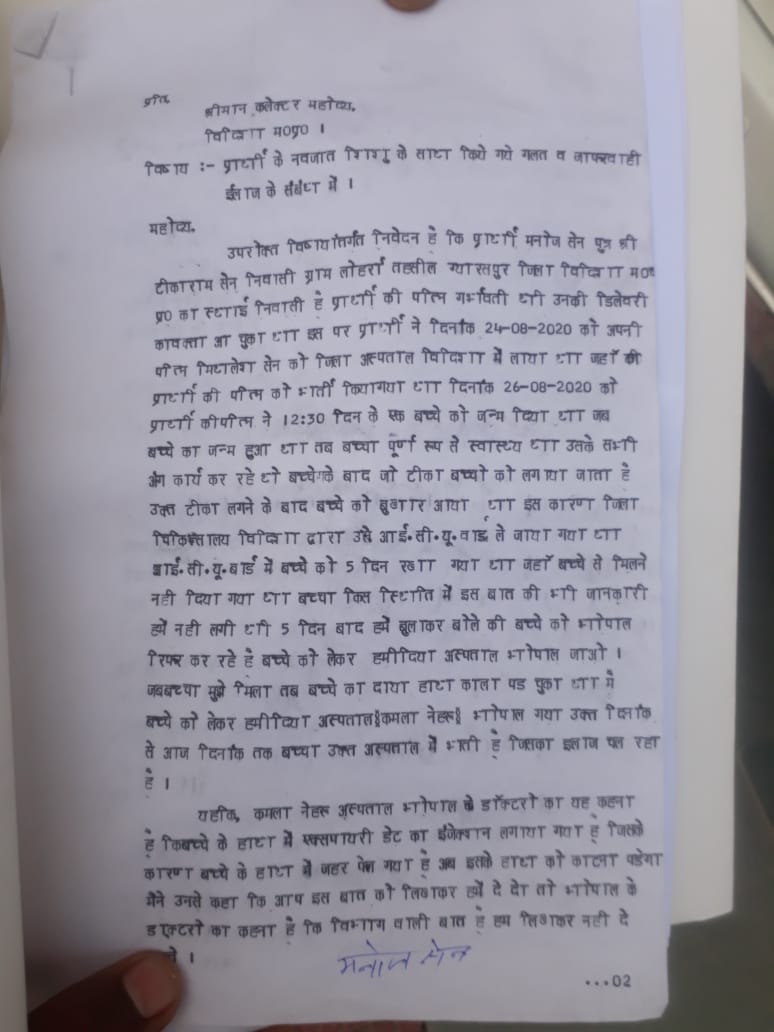 प्रति,
श्रीमान कलेक्टर महोदय,
विदिशा म०प्र० ।
विषय :- प्रार्थी के नवजात शिशु के साथ किये गये गलत व लाफरवाही
ईलाज के संबंध में ।
महोदय,
उपरोक्त विषयांतर्गत निवेदन है कि प्रार्थी मनोज सेन पुत्र श्री
टीकाराम सेन निवासी ग्राम लोहर्रा तहसील ग्यारसपुर जिला विदिशा म०
प्र० का स्थाई निवासी है प्रार्थी की पत्नि गर्भवती थी उनकी डिलेवरी
का वक्त आ चुका था इस पर प्रार्थी ने दिनांक 24-08-2020 को अपनी
पत्नि मिथलेश सेन को जिला अस्पताल विदिशा में लाया था जहाँ की
प्रार्थी की पत्नि को भर्ती कियागया था दिनांक 26-08-2020 को
प्रार्थी कीपत्नि ने 12:30 दिन के एक बच्चे को जन्म दिया था जब
बच्चे का जन्म हुआ था तब बच्चा पूर्ण रूप से स्वास्थ्य था उसके सभी
अंग कार्य कर रहे थे बच्चे के बाद जो टीका बच्चो को लगाया जाता है
उक्त टीका लगने के बाद बच्चे को बुखार आया था इस कारण जिला
चिकित्सालय विदिशा द्वारा उसे आई.सी.यू.वार्ड ले जाया गया था
आई.सी.यू.वार्ड में बच्चे को 5 दिन रखा गया था जहाँ बच्चे से मिलने
नही दिया गया था बच्चा किस स्थिति में इस बात की भी जानकारी
हमें नही लगी थी 5 दिन बाद हमें बुलाकर बोले की बच्चे को भोपाल
रिफर कर रहे है बच्चे को लेकर हमीदिया अस्पताल भोपाल जाओ ।
जबबच्चा मुझे मिला तब बच्चे का दाया हाथ काला पड चुका था मैं
बच्चे को लेकर हमीदिया अस्पताल§कमला नेहरू§ भोपाल गया उक्त दिनांक
से आज दिनांक तक बच्चा उक्त अस्पताल में भर्ती है जिसका इलाज चल रहा
है ।
यहकि, कमला नेहरू अस्पताल भोपाल के डॉक्टरो का यह कहना
है किबच्चे के हाथ में एक्सपायरी डेट का इंजेक्शन लगाया गया है जिसके
कारण बच्चे के हाथ में जहर फेल गया है अब इसके हाथ को काटना पडेगा
मैने उनसे कहा कि आप इस बात को लिखकर हमें दे दो तो भोपाल के
डाक्टरो का कहना है कि विभाग वाली बात है हम लिखकर नही दे
।
मनोज सेन
...02